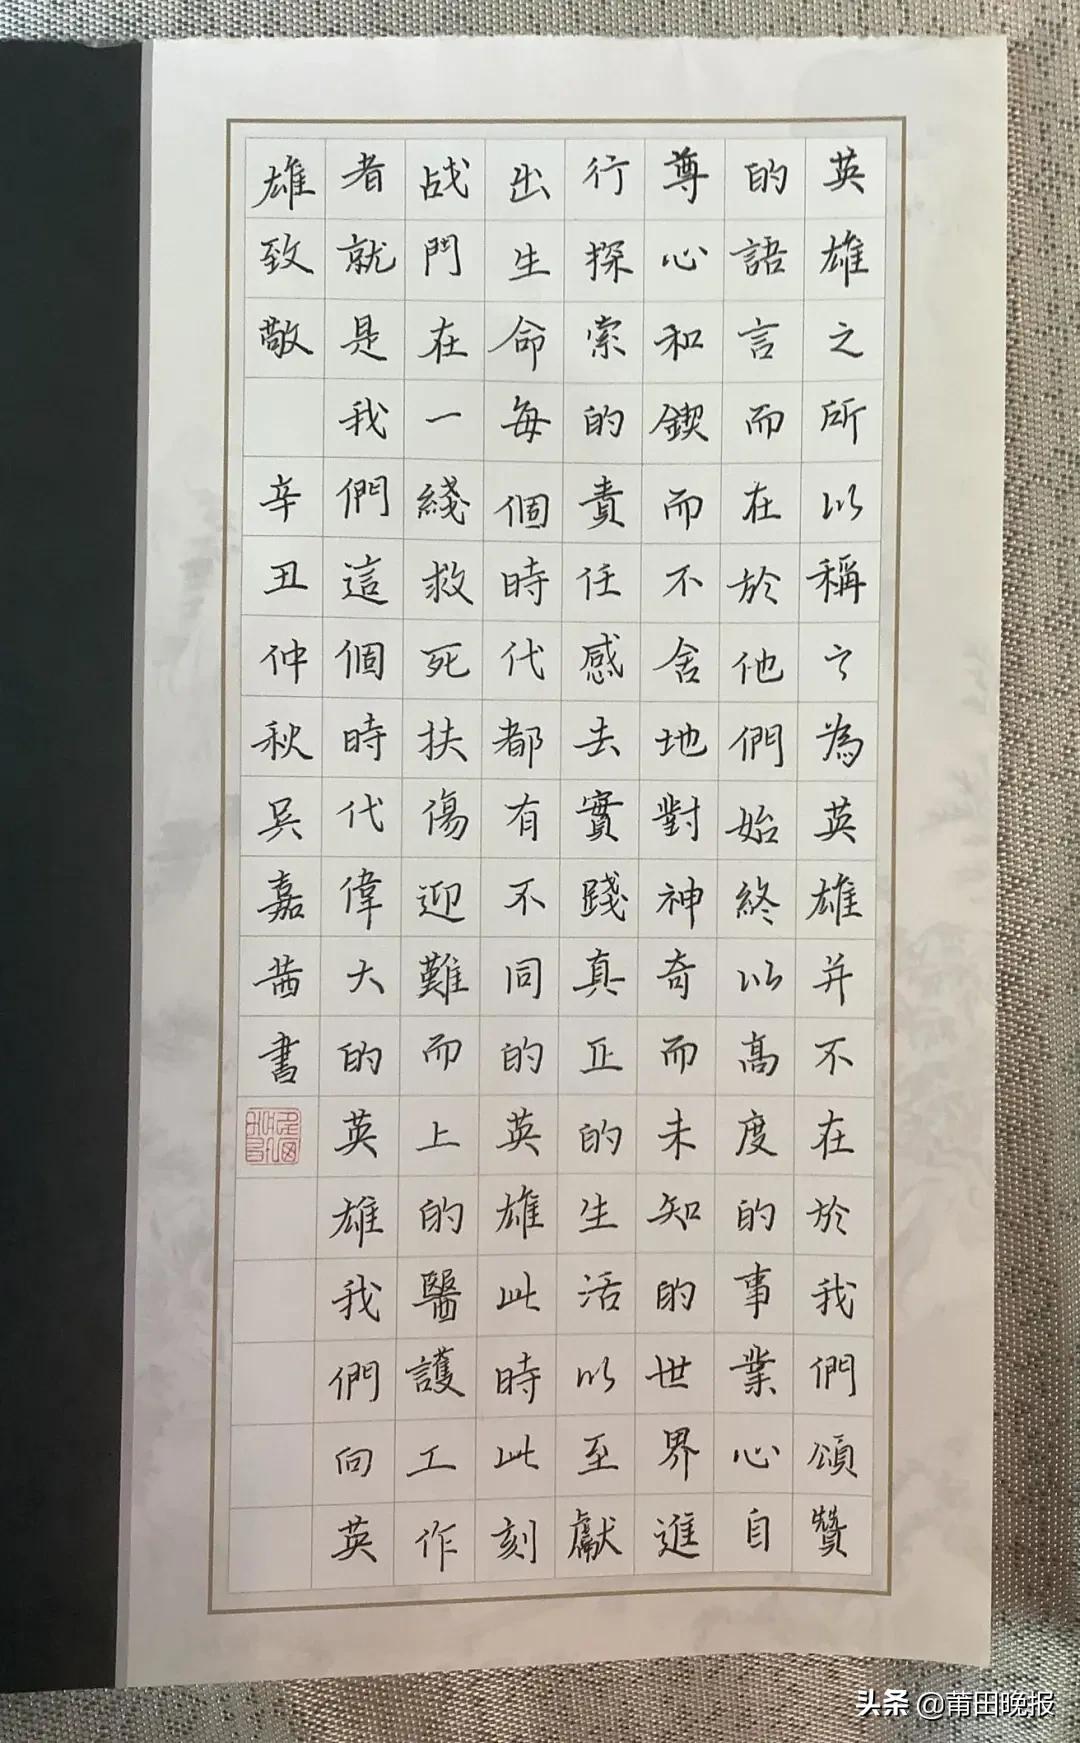 英雄之所以稱之為英雄并不在於我們頌贊
的語言而在於他們始終以高度的事業心自
尊心和鍥而不舍地對神奇而未知的世界進
行探索的責任感去實踐真正的生活以至獻
出生命每個時代都有不同的英雄此時此刻
战門在一綫救死扶傷迎難而上的醫護工作
者就是我們這個時代偉大的英雄我們向英
雄致敬 辛丑仲秋吳嘉茜書
头条 @莆田晚报